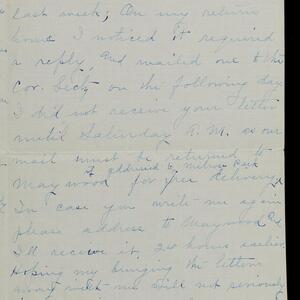 last week; On my return
home I noticed it required
a reply, and mailed one to the
Cor. Secty on the following day
I did not receive your letter
until Saturday A.M. as our
mail must be returned to
if addressed to Melrose Park
Maywood for free delivery.
In case you write me again
please address to Maywood
I'll receive it, 24 hours earlier.
Hoping my bringing the letter
away with me will not seriously